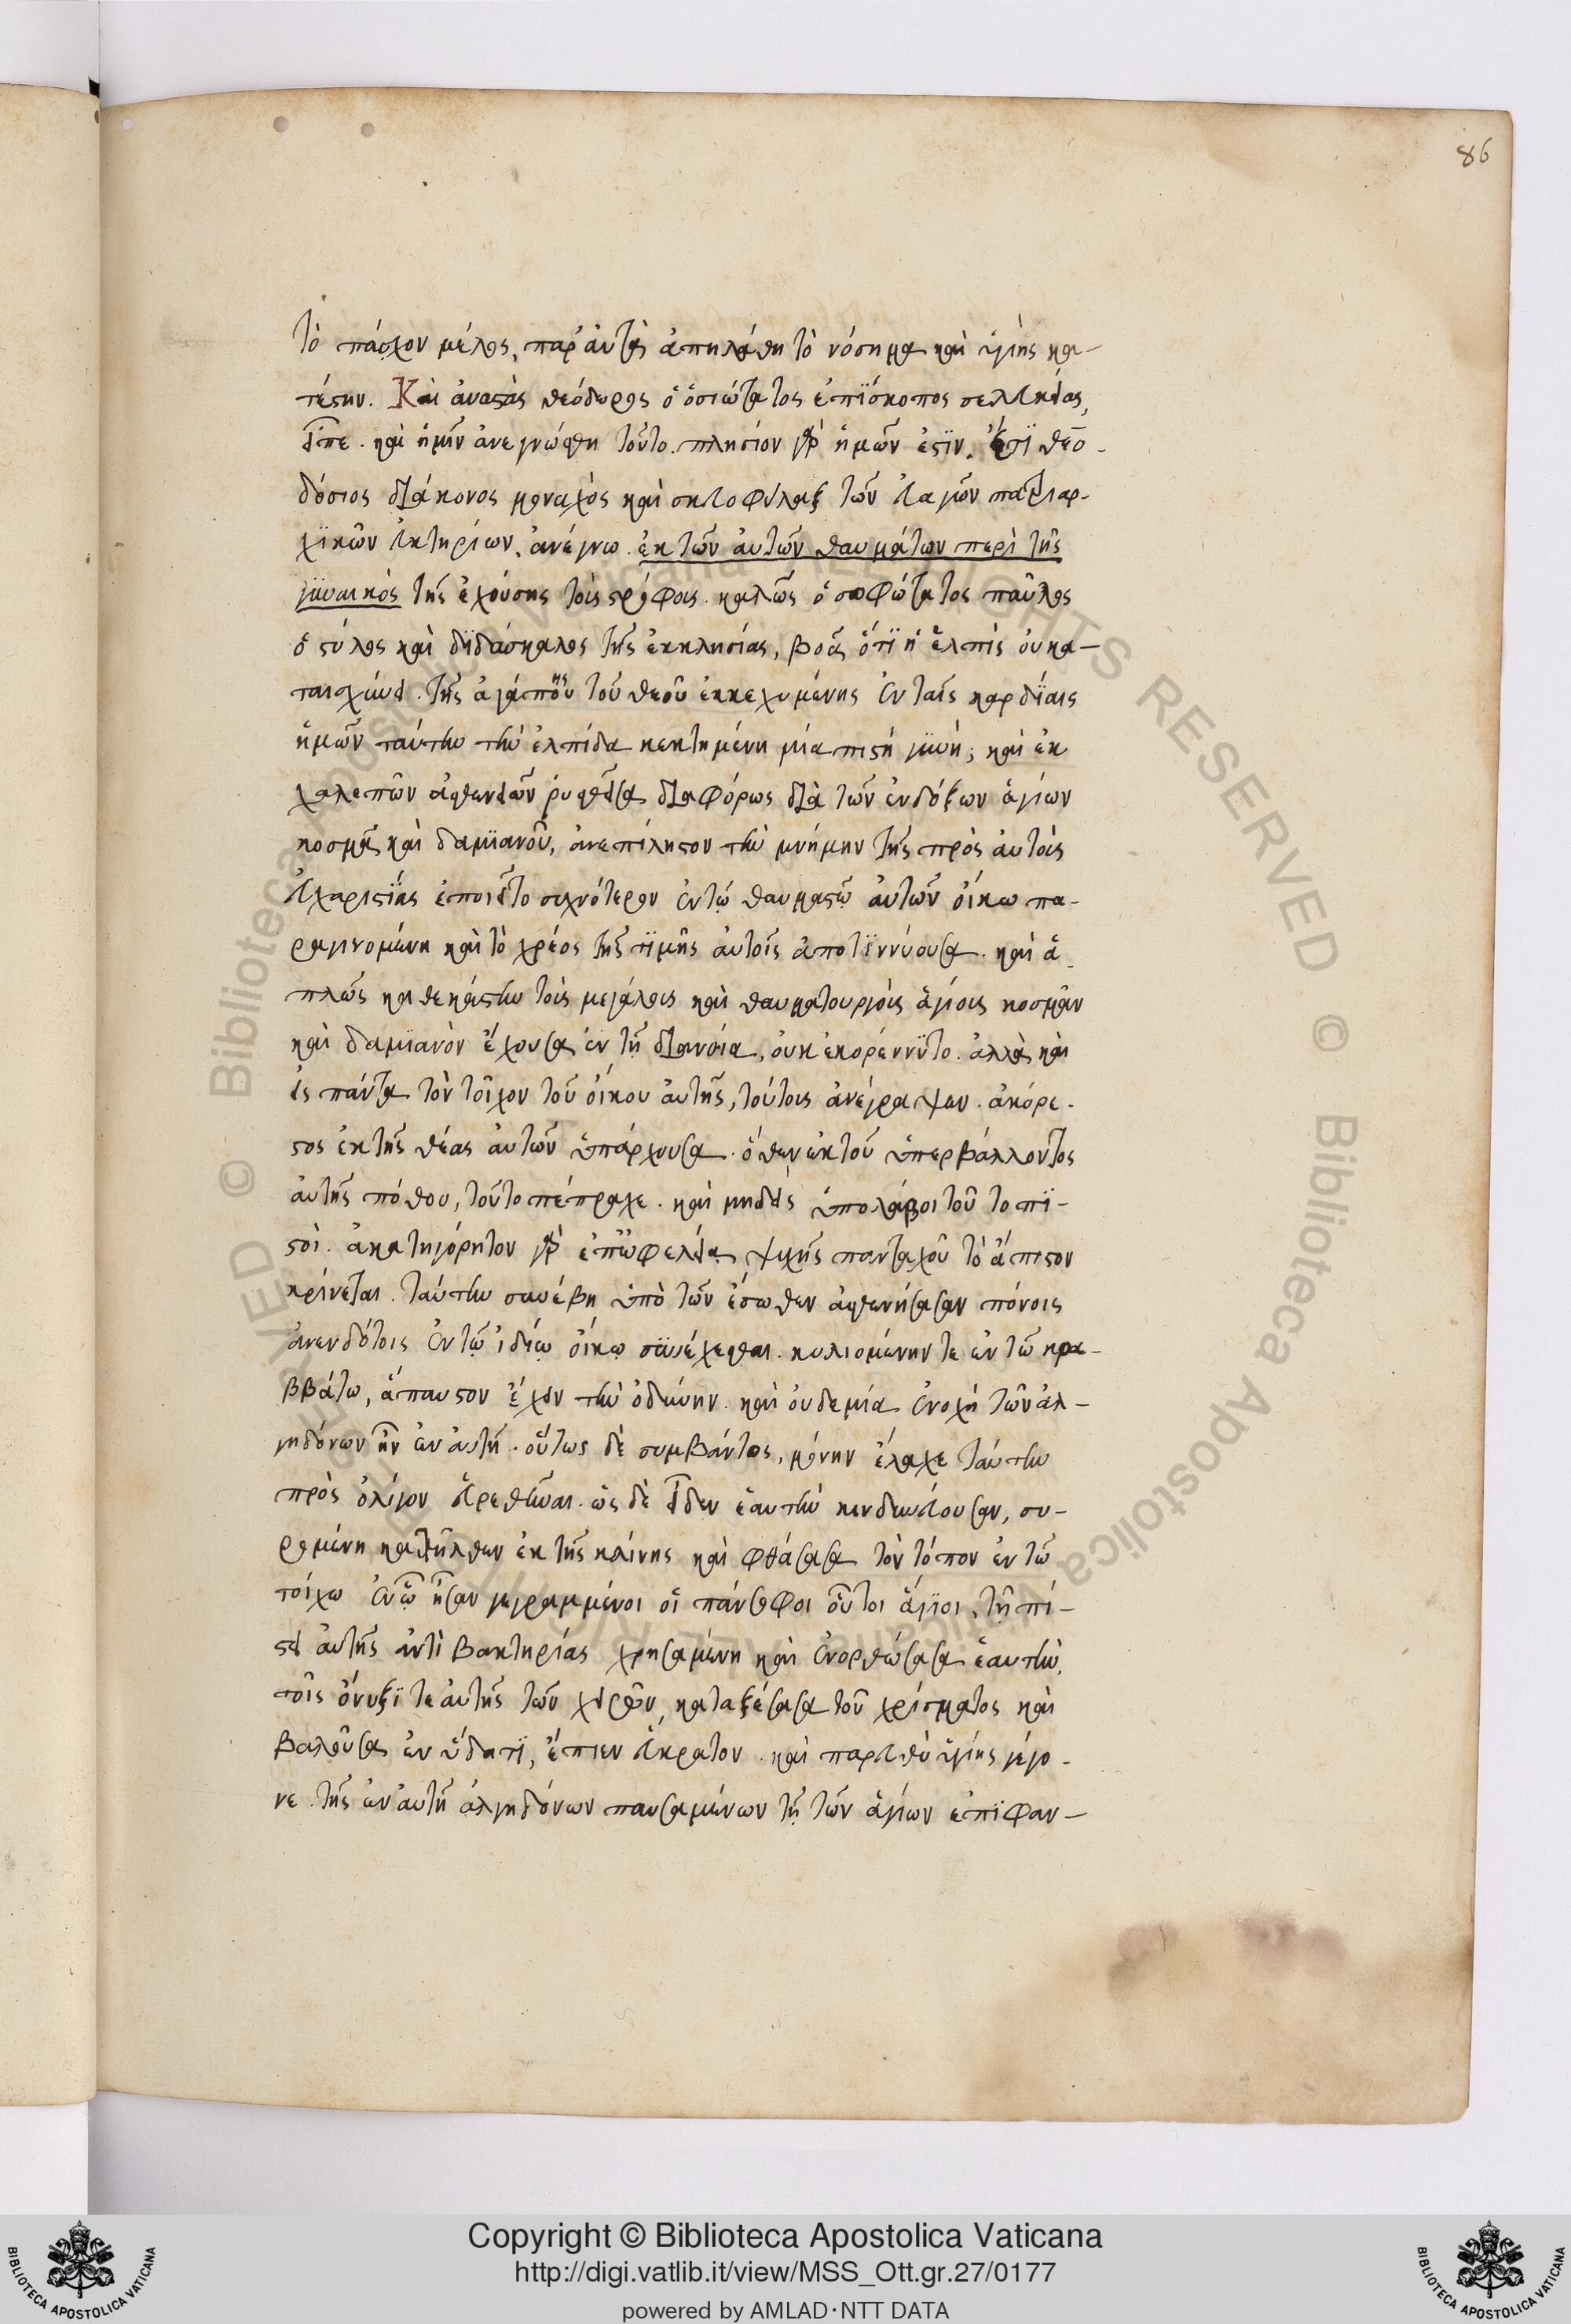 86
τὸ πάσχον μέλος, παρ' αὐτὰ ἀπηλάθη τὸ νόσημα καὶ ὑγιὴς κα-
τέστην. Καὶ ἀναστὰς θεόδωρος ὁ ὁσιώτατος ἐπΐσκοπος σελευκείας,
εἶπε. καὶ ἡμῖν ἀνεγνώσθη τοῦτο. πλησίον γὰρ ἡμῶν ἐστϊν. ἔτϊ θεο-
δόσιος διάκονος μοναχὸς καὶ σκευοφύλαξ τῶν εὐαγῶν πατριαρ-
χϊκῶν εὐκτηρίων, ἀνέγνω. ἐκ τῶν αὐτῶν θαυμάτων περὶ τῆς
γϋναικὸς τῆς ἐχούσης τοὺς στρόφους. καλῶς ὁ σοφώτατος παῦλος
ὁ στύλος καὶ δϊδάσκαλος τῆς ἐκκλησίας, βοᾶ ὅτϊ ἡ ἐλπὶς οὐ κα-
ταισχύνει. τῆς ἀγάπης τοῦ θεοῦ ἐκκεχυμένης ἐν ταῖς καρδΐαις
ἡμῶν ταύτην τὴν ἐλπίδα κεκτημένη μία πιστὴ γϋνὴ; καὶ ἐκ
χαλεπῶν ἀσθενειῶν ῥυσθεῖσα διαφόρως διὰ τῶν ἐνδόξων ἁγίων
κοσμᾶ καὶ δαμϊανοῦ, ἀνεπίληστον τὴν μνήμην τῆς πρὸς αὐτοὺς
εὐχαριστΐας ἐποιεῖτο συχνότερον ἐν τῷ θαυμαστῷ αὐτῶν οἴκω πα-
ραγινομένη καὶ τὸ χρέος τῆς τϊμῆς αὐτοῖς ἀποτϊννύουσα. καὶ ἁ-
πλῶς καθεκάστην τοὺς μεγάλους καὶ θαυματουργοὺς ἁγίους κοσμᾶν
καὶ δαμϊανὸν ἔχουσα ἐν τῇ διανοία, οὐκ ἐκορέννϋτο. ἀλλὰ καὶ
εἰς πάντα τὸν τοῖχον τοῦ οἴκου αὐτῆς, τούτους ἀνέγραψεν. ἀκόρε-
στος ἐκ τῆς θέας αὐτῶν ὑπάρχουσα. ὅθεν ἐκ τοῦ ὑπερβάλλοντος
αὐτῆς πόθου, τοῦτο πέπραχε. καὶ μηδεὶς ὑπολάβοι τοῦτο πϊ-
στοὶ. ἀκατηγόρητον γὰρ ἐπ' ὠφελεία ψυχῆς πανταχοῦ τὸ ἄπιστον
κρίνεται. ταύτην συνέβη ὑπὸ τῶν ἔσωθεν ἀσθενήσασαν πόνοις
ἀνενδότοις ἐν τῷ ἰδίῳ οἴκῳ σϋνέχεσθαι. κυλιομένην τε ἐν τῶ κρα-
ββάτω, ἄπαυστον ἔχον τὴν ὀδύνην. καὶ οὐδεμία ἐνοχὴ τῶν ἀλ-
γηδόνων ἦν ἐν αὐτῆ. οὕτως δὲ συμβάντος, μόνην ἔλαχε ταύτην
πρὸς ὀλίγον εὑρεθῆναι. ὡς δὲ εἶδεν ἑαυτὴν κινδυνεύουσαν, συ-
ρομένη κατῆλθεν ἐκ τῆς κλίνης καὶ φθάσασα τὸν τόπον ἐν τῶ
τοίχω ἐν ᾧ ἦσαν γεγραμμένοι οἱ πάνσοφοι οὗτοι ἅγϊοι, τῇ πί-
στει αὐτῆς ἀντὶ βακτηρίας χρησαμένη καὶ ἀνορθώσασα ἑαυτὴν,
τοῖς ὄνυξϊ τε αὐτῆς τῶν χειρῶν, καταξέσασα τοῦ χρίσματος καὶ
βαλοῦσα ἐν ὕδατϊ, ἔπιεν εὔκρατον. καὶ παρευθὺ ὑγιὴς γέγο-
νε. τῆς ἐν αὐτῆ ἀλγηδόνων παυσαμένων τῇ τῶν ἁγίων ἐπϊφαν-
Copyright © Biblioteca Apostolica Vaticana
http://digi.vatlib.it/view/MSS_Ott.gr.27/0177
powered by AMLAD·NTT DATA